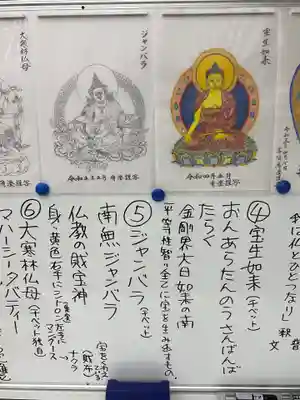 宝生如来
令和四年五月
ジャンバラ
大寒林仏母
仏とひとつなり」釈
文
④宝生如来(チベット)
おんあらたんのうさんばんば
たらく
金剛界大日如来の南
平等性智 全てに宝を生み出すもの。
⑤ジャンバラ(チベット)
南無ジャンバラ
仏教の財宝神
身、黄色 右手にシトロン 左手に
マングース
⑥大寒林仏母(チベット独自)
マハーシータバティー